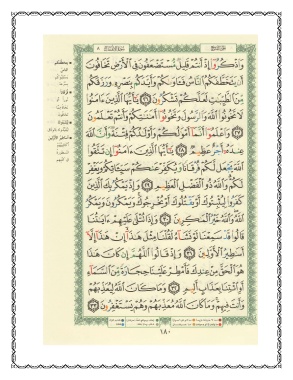 وَاذْكُرُوا إِذْ أَنتُمْ قَلِيلٌ مُّسْتَضْعَفُونَ فِي الْأَرْضِ تَخَافُونَ
أَن يَتَخَطَّفَكُمُ النَّاسُ فَآوَاكُمْ وَأَيَّدَكُم بِنَصْرِهِ وَرَزَقَكُم
مِّنَ الطَّيِّبَاتِ لَعَلَّكُمْ تَشْكُرُونَ ٢٦ يَا أَيُّهَا الَّذِينَ آمَنُوا
لَا تَخُونُوا اللَّهَ وَالرَّسُولَ وَتَخُونُوا أَمَانَاتِكُمْ وَأَنتُمْ تَعْلَمُونَ
٢٧ وَاعْلَمُوا أَنَّمَا أَمْوَالُكُمْ وَأَوْلَادُكُمْ فِتْنَةٌ وَأَنَّ اللَّهَ
عِندَهُ أَجْرٌ عَظِيمٌ ٢٨ يَا أَيُّهَا الَّذِينَ آمَنُوا إِن تَتَّقُوا
اللَّهَ يَجْعَل لَّكُمْ فُرْقَانًا وَيُكَفِّرْ عَنكُمْ سَيِّئَاتِكُمْ وَيَغْفِرْ
لَكُمْ وَاللَّهُ ذُو الْفَضْلِ الْعَظِيمِ ٢٩ وَإِذْ يَمْكُرُ بِكَ الَّذِينَ
كَفَرُوا لِيُثْبِتُوكَ أَوْ يَقْتُلُوكَ أَوْ يُخْرِجُوكَ وَيَمْكُرُونَ وَيَمْكُرُ
اللَّهُ وَاللَّهُ خَيْرُ الْمَاكِرِينَ ٣٠ وَإِذَا تُتْلَى عَلَيْهِمْ آيَاتُنَا
قَالُوا قَدْ سَمِعْنَا لَوْ نَشَاءُ لَقُلْنَا مِثْلَ هَذَا إِنْ هَذَا إِلَّا
أَسَاطِيرُ الْأَوَّلِينَ ٣١ وَإِذْ قَالُوا اللَّهُمَّ إِن كَانَ هَذَا
هُوَ الْحَقَّ مِنْ عِندِكَ فَأَمْطِرْ عَلَيْنَا حِجَارَةً مِّنَ السَّمَاءِ
أَوِ ائْتِنَا بِعَذَابٍ أَلِيمٍ ٣٢ وَمَا كَانَ اللَّهُ لِيُعَذِّبَهُمْ
وَأَنتَ فِيهِمْ وَمَا كَانَ اللَّهُ مُعَذِّبَهُمْ وَهُمْ يَسْتَغْفِرُونَ ٣٣
١٨٠